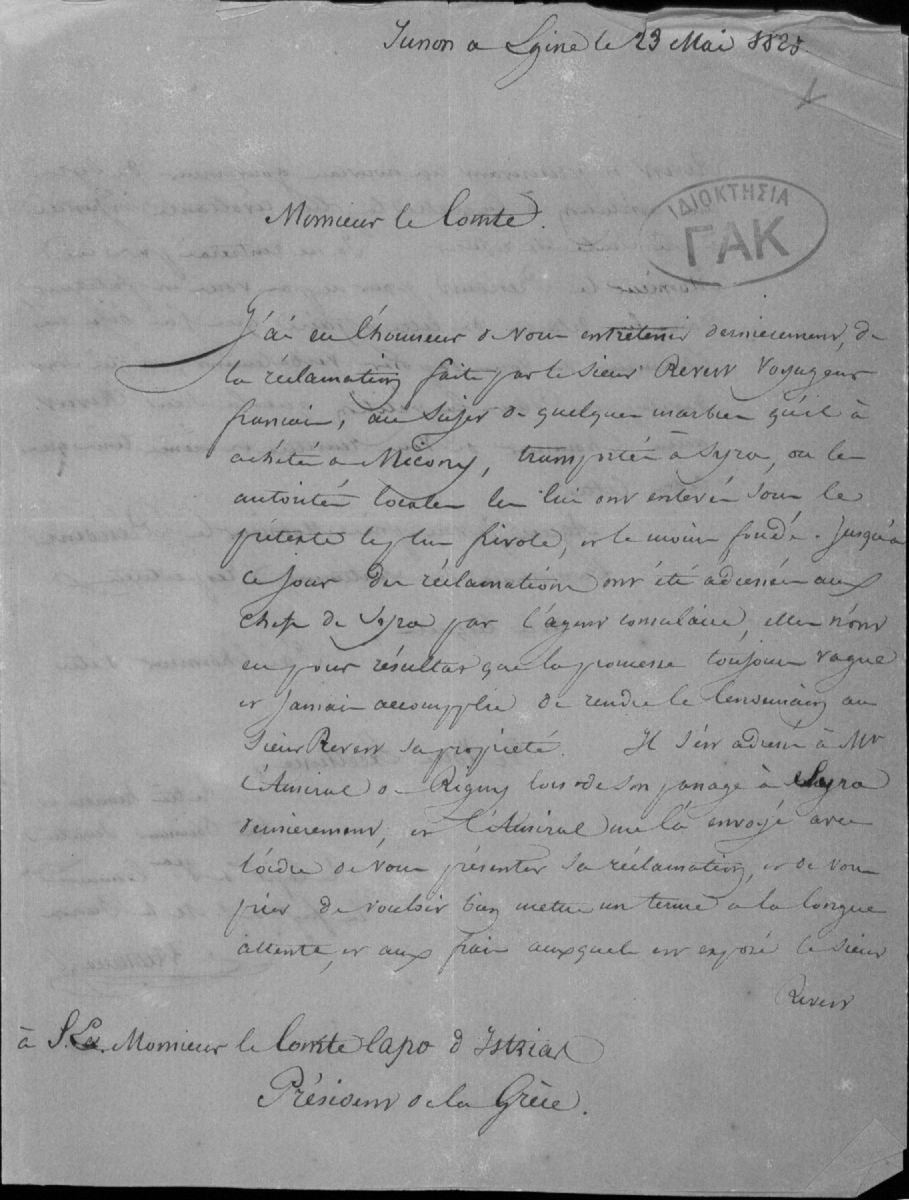 Junon à Egine le 23 Mai 1828.
ΙΔΙΟΚΤΗΣΙΑ
ΓΑΚ
Monsieur le Comte.
J'ai eu l'honneur de vous entretenir dernierement, de
la réclamation faite par le Sieur Reverr Voyageur
francais, au Sujet de quelques marbres qu'il à
achétés à Miconi, transportés à Syra, ou les
autorités locales les lui ont enlevés sous le
prétexte le plus frivole, et le moins fondé. Jusqu'à
ce jour des réclamations ont été adressées aux
chefs de Syra par l'agent consulaire, elles n'ont
eu pour résultat que la promesse toujours vague
et jamais accomplie de rendre le lendemain au
Sieur Reverr sa propriété. Il s'est adressé à Mr
l'Amiral de Rigny lors de son passage à Syra
dernierement, et l'Amiral me l'à envoyé avec
l'ordre de vous présenter sa réclamation, et de vous
prier de vouloir bien mettre un terme à la longue
attente, et aux frais auxquels est exposé le Sieur
Reverr
à S. Ex. Monsieur le Comte Capo d'Istrias
Président de la Grèce.